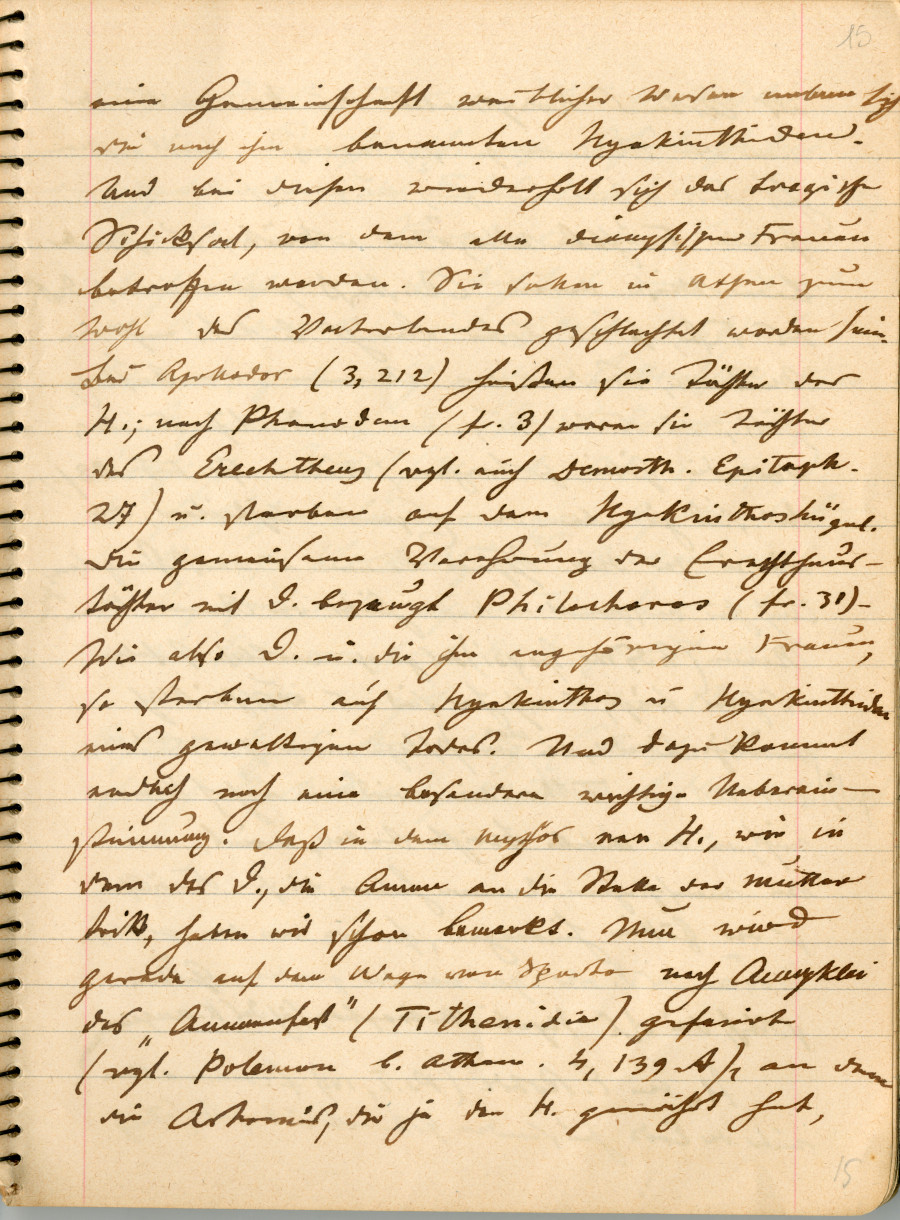 15
eine Gemeinschaft weiblicher Wesen neben sich
die nach ihm benannten Hyakinthiden.
Und bei diesen wiederholt sich das tragische
Schicksal, von dem alle dionysischen Frauen
betroffen werden. Sie sollen in Athen zum
Wohl des Vaterlandes geschlachtet worden sein.
Bei Apollodor (3, 212) heißen sie Töchter des
H.; nach Phanodem (fr. 3) waren sie Töchter
des Erechtheus (vgl. auch Demosth. Epitaph.
27) u. starben auf dem Hyakinthoshügel.
Die gemeinsame Verehrung der Erechtheus-
töchter mit D. bezeugt Philochoros (fr. 31)-
Wie also D. u. die ihm angehörigen Frauen,
so sterben auch Hyakinthos u Hyakinthiden
eines gewaltsamen Todes. Und dazu kommt
endlich noch eine besonders wichtige Ueberein-
stimmung. Daß in dem Mythos von H., wie in
dem des D., die Amme an die Stelle der Mutter
tritt, haben wir schon bemerkt. Nun wird
gerade auf dem Wege von Sparta nach Amyklai
das „Ammenfest" (Tithenidia) gefeiert
(vgl. Polemon b. Athen. 4, 139 A), an dem
die Artemis, die ja den H. genährt hat,
15